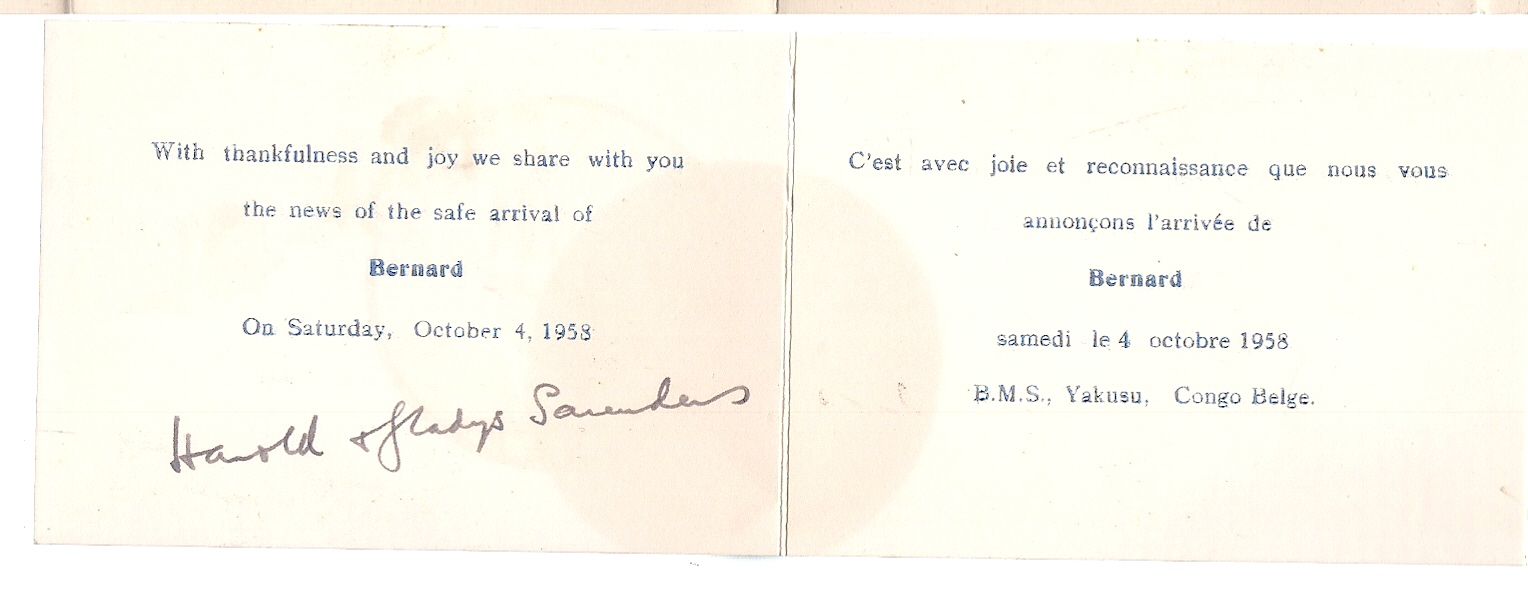 With thankfulness and joy we share with you
the news of the safe arrival of
Bernard
On Saturday, October 4, 1958
Harold & Gladys Saunders
C'est avec joie et reconnaissance que nous vous
annonçons l'arrivée de
Bernard
samedi le 4 octobre 1958
B.M.S., Yakusu, Congo Belge.